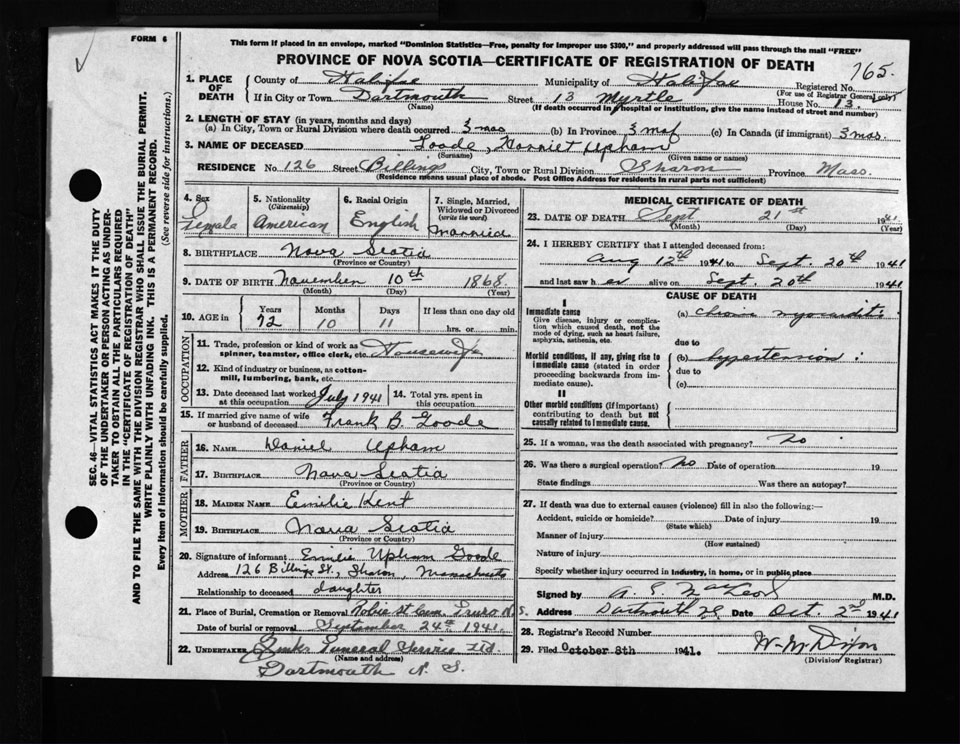 FORM 6
This form if placed in an envelope, marked "Dominion Statistics—Free, penalty for improper use $300," and properly addressed will pass through the mail "FREE"
PROVINCE OF NOVA SCOTIA—CERTIFICATE OF REGISTRATION OF DEATH
765.
SEC. 46—VITAL STATISTICS ACT MAKES IT THE DUTY
OF THE UNDERTAKER OR PERSON ACTING AS UNDER-
TAKER TO OBTAIN ALL THE PARTICULARS REQUIRED
IN THE "CERTIFICATE OF REGISTRATION OF DEATH"
AND TO FILE THE SAME WITH THE DIVISION REGISTRAR WHO SHALL ISSUE THE BURIAL PERMIT.
WRITE PLAINLY WITH UNFADING INK. THIS IS A PERMANENT RECORD.
Every item of Information should be carefully supplied. (See reverse side for instructions.)
1. PLACE OF DEATH
County of Halifax Municipality of Halifax Registered No.
(For use of Registrar General only)
If in City or Town Dartmouth Street 13 Myrtle House No. 13.
(Name) (If death occurred in hospital or institution, give the name instead of street and number)
2. LENGTH OF STAY (in years, months and days)
(a) In City, Town or Rural Division where death occurred 3 mos (b) In Province 3 mos (c) In Canada (if immigrant) 3 mos.
3. NAME OF DECEASED Goode, Harriet Upham
(Surname) (Given name or names)
RESIDENCE No. 126 Street Billings City, Town or Rural Division Sharon Province Mass.
(Residence means usual place of abode. Post Office Address for residents in rural parts not sufficient)
4. Sex Female
5. Nationality (Citizenship) American
6. Racial Origin English
7. Single, Married, Widowed or Divorced (write the word) Married
8. BIRTHPLACE Nova Scotia
(Province or Country)
9. DATE OF BIRTH November 10th 1868
(Month) (Day) (Year)
10. AGE in Years 72 Months 10 Days 11 If less than one day old
hrs. or min.
OCCUPATION
11. Trade, profession or kind of work as spinner, teamster, office clerk, etc. Housewife
12. Kind of industry or business, as cotton-mill, lumbering, bank, etc.
13. Date deceased last worked at this occupation July 1941 14. Total yrs. spent in this occupation
15. If married give name of wife or husband of deceased Frank B. Goode
FATHER
16. NAME Daniel Upham
17. BIRTHPLACE Nova Scotia
(Province or Country)
MOTHER
18. MAIDEN NAME Emilie Kent
19. BIRTHPLACE Nova Scotia
(Province or Country)
20. Signature of informant Emilie Upham Goode
Address 126 Billings St., Sharon, Massachusetts
Relationship to deceased daughter
21. Place of Burial, Cremation or Removal Robie St Cem. Truro N.S.
Date of burial or removal September 24th 1941.
22. UNDERTAKER Funeral Service Ltd.
(Name and address)
Dartmouth N. S.
MEDICAL CERTIFICATE OF DEATH
23. DATE OF DEATH Sept 21st 1941
(Month) (Day) (Year)
24. I HEREBY CERTIFY that I attended deceased from:
Aug 12th 1941 to Sept. 20th 1941
and last saw her alive on Sept. 20th 1941
CAUSE OF DEATH
I
Immediate cause
Give disease, injury or complication which caused death, not the mode of dying, such as heart failure, asphyxia, asthenia, etc.
(a) chronic myocarditis
due to
Morbid conditions, if any, giving rise to immediate cause (stated in order proceeding backwards from immediate cause).
(b) hypertension
due to
(c)
II
Other morbid conditions (if important) contributing to death but not causally related to immediate cause.
25. If a woman, was the death associated with pregnancy? No
26. Was there a surgical operation? No Date of operation 19
State findings Was there an autopsy?
27. If death was due to external causes (violence) fill in also the following:—
Accident, suicide or homicide? Date of injury 19
(State which)
Manner of injury
(How sustained)
Nature of injury
Specify whether injury occurred in industry, in home, or in public place
Signed by A. E. MacLeod M.D.
Address Dartmouth N.S. Date Oct. 2nd 1941
28. Registrar's Record Number
29. Filed October 8th 1941. W. M. Dixon
(Division Registrar)